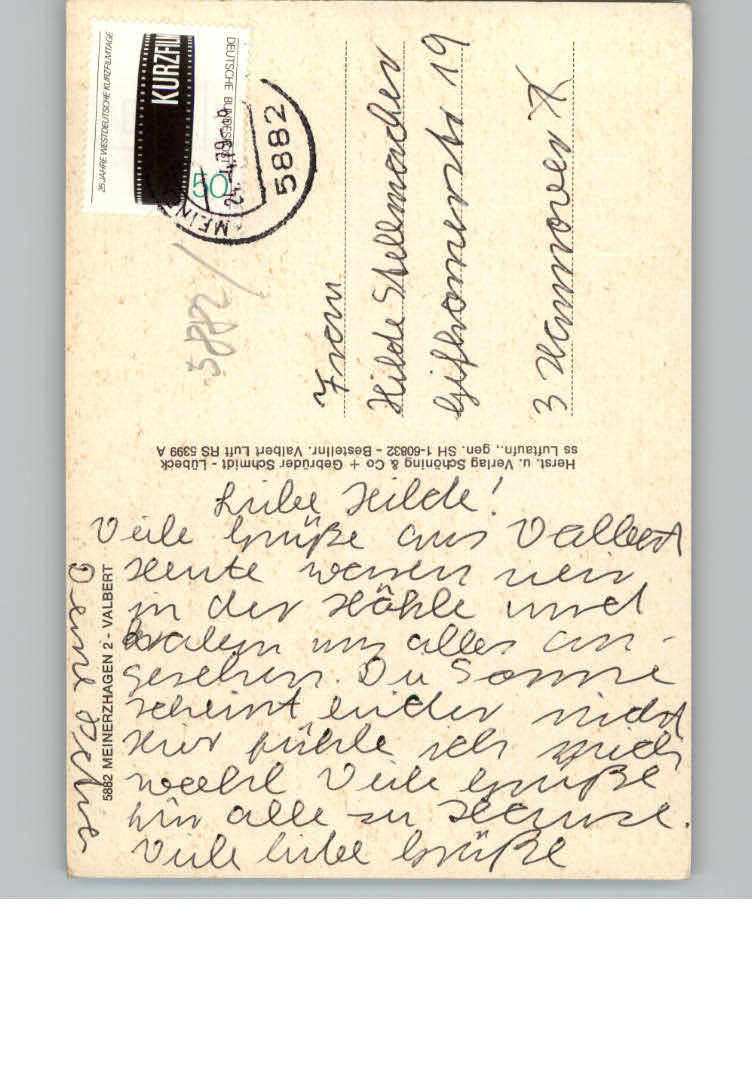 25 JAHRE WESTDEUTSCHE KURZFILMTAGE
KURZFIL
DEUTSCHE BUNDESPOST
50
5882
5882
Frau
Hilde Stellmacher
Gifhornerstr 19
3 Hannover X
Herst. u. Verlag Schöning & Co + Gebrüder Schmidt - Lübeck
ss Luftaufn., gen. SH 1-60832 - Bestellnr. Valbert Luft RS 5399 A
5882 MEINERZHAGEN 2 - VALBERT
Liebe Hilde!
Viele Grüße aus Valbert
Heute waren wir
in der Höhle und
haben uns alles an-
gesehen. Die Sonne
scheint leider nicht
Hier fühle ich mich
wohl Viele Grüße
für alle zu Hause.
Viele liebe Grüße
Deine